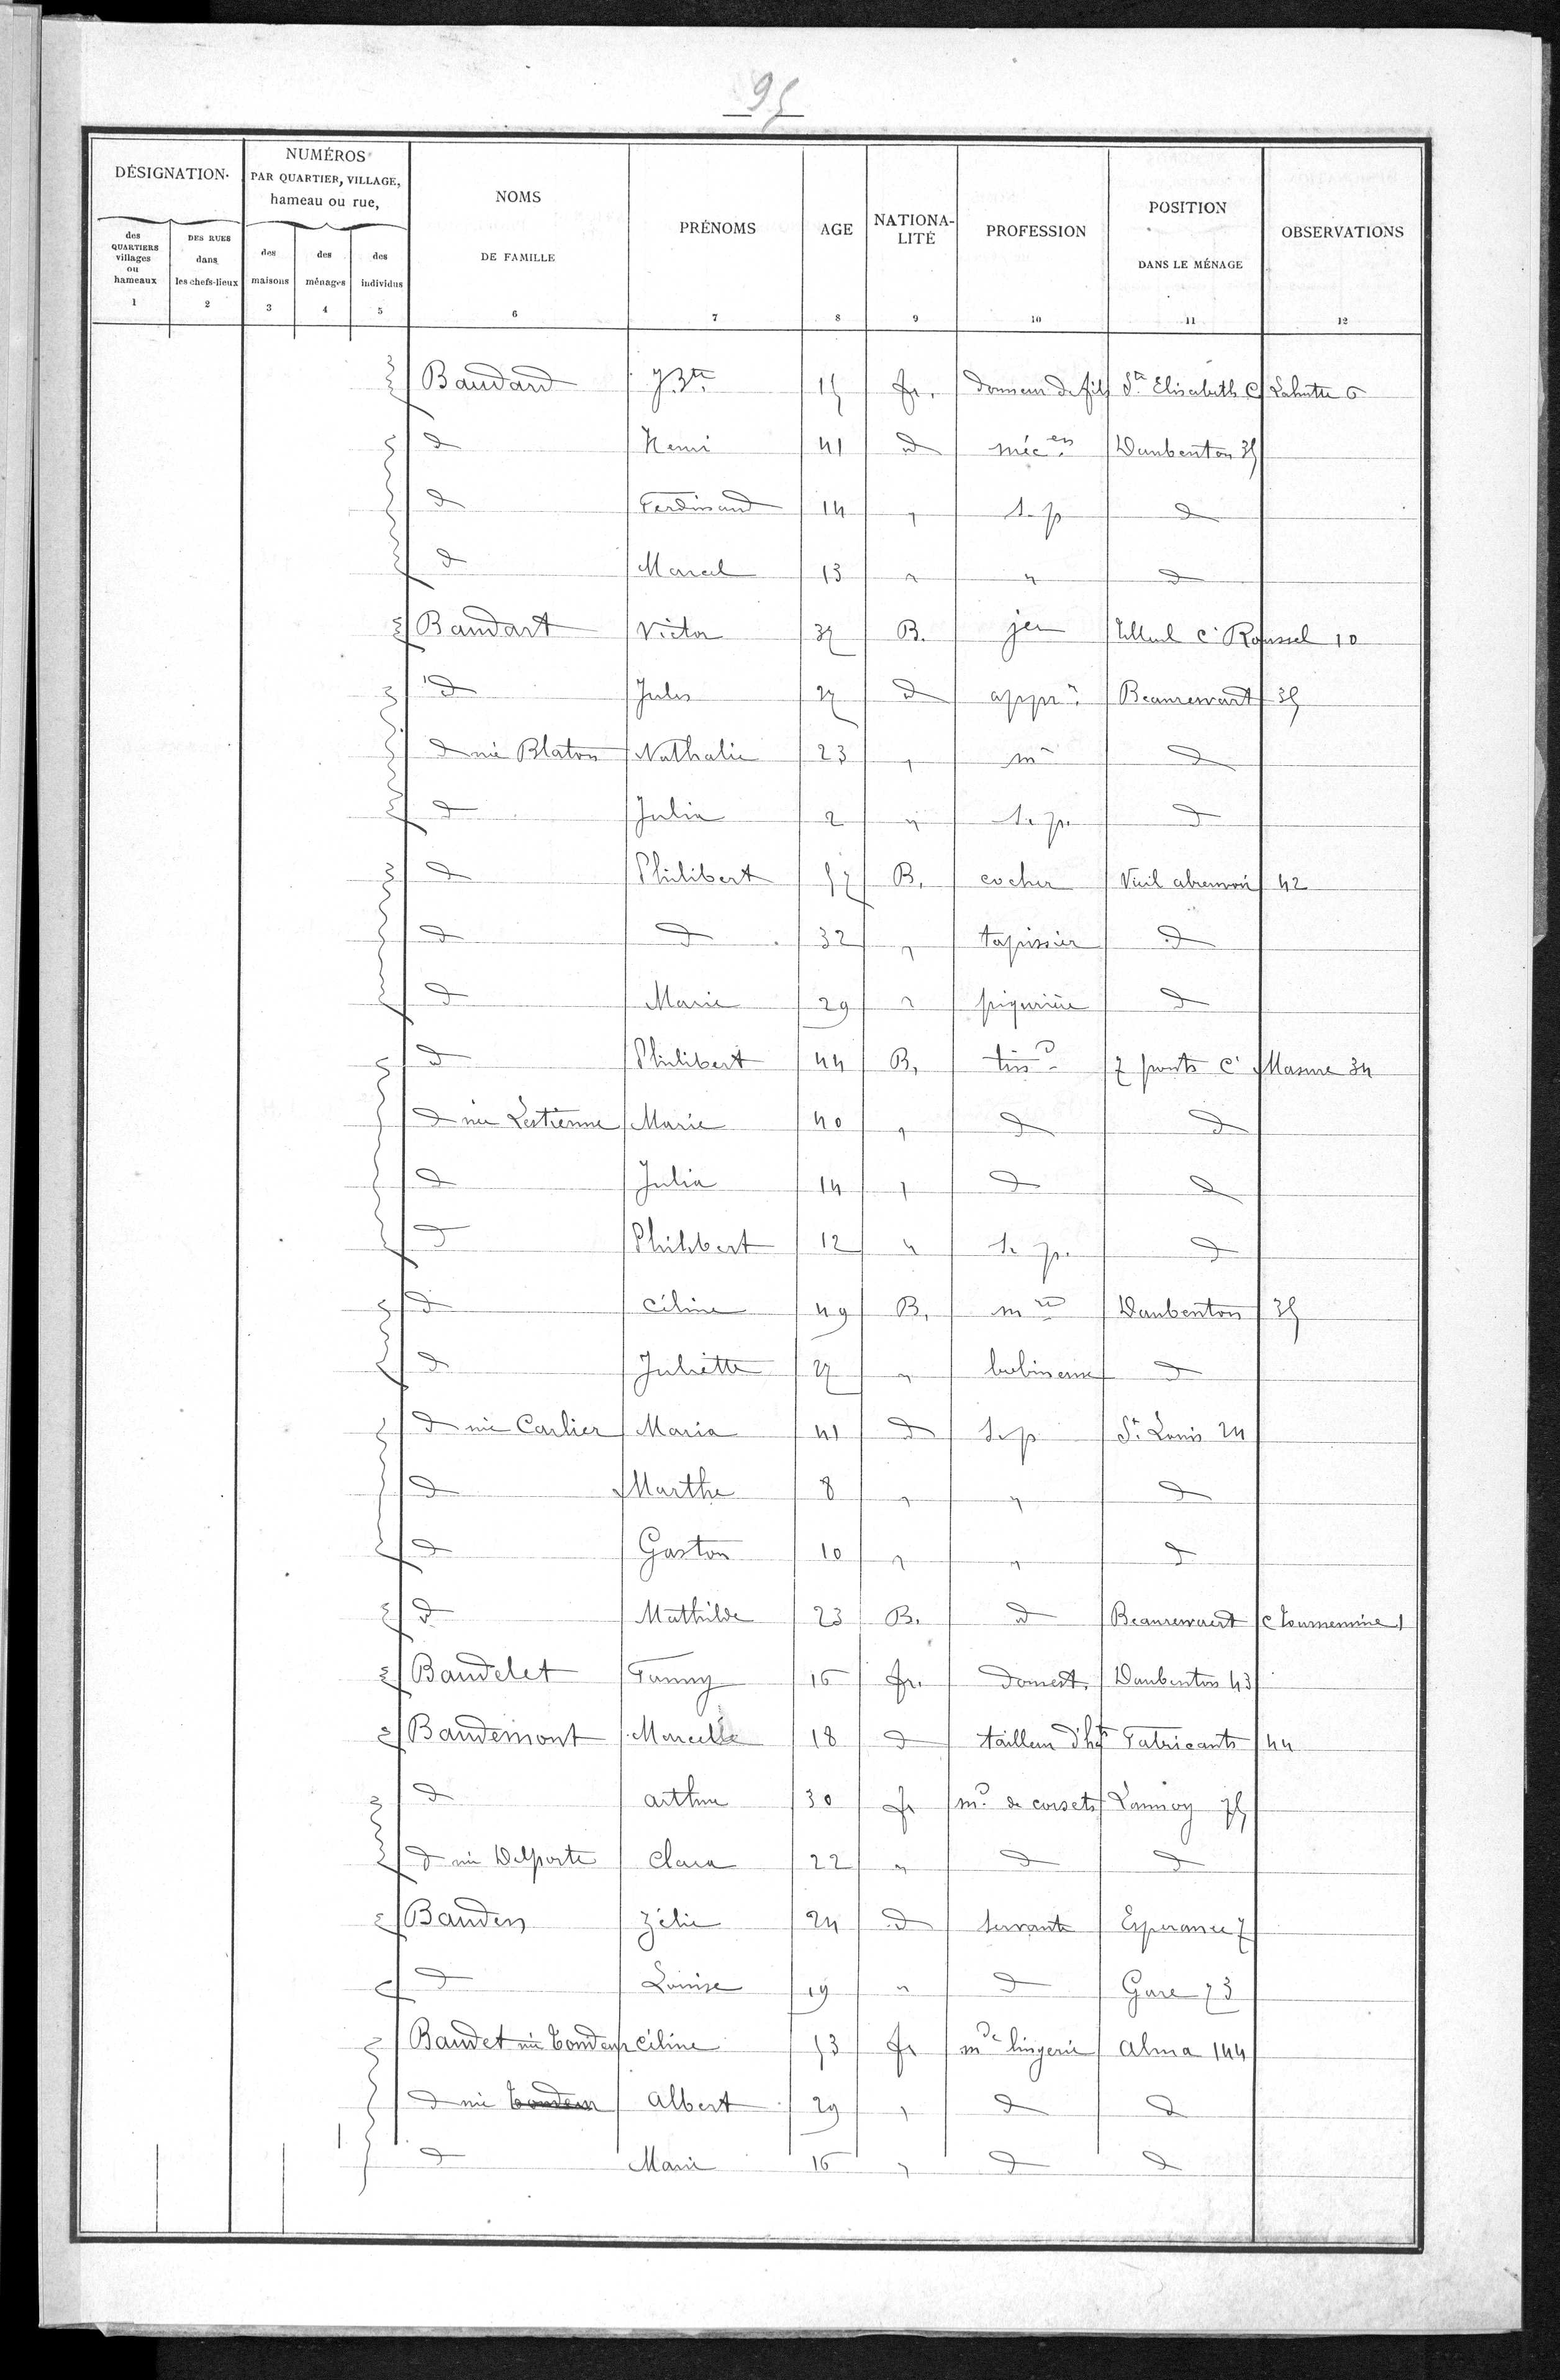 95
DÉSIGNATION
NUMÉROS PAR QUARTIER, VILLAGE, hameau ou rue,
NOMS DE FAMILLE
PRÉNOMS
AGE
NATIONA-LITÉ
PROFESSION
POSITION DANS LE MÉNAGE
OBSERVATIONS
des QUARTIERS villages ou hameaux
DES RUES dans les chefs-lieux
des maisons
des ménages
des individus
1 2 3 4 5 6 7 8 9 10 11 12
Baudard J. Bte 15 fr. donneur de fils Ste Elisabeth C Lahutte 6
d Henri 41 d mécen Daubenton 35
d Ferdinand 14 " s. p d
d Marcel 13 " " d
Baudart Victor 37 B. jer Tilleul Cr Roussel 10
d Jules 27 d appr Beaurewart 35
d née Blaton Nathalie 23 " m d
d Julia 2 " s. p. d
d Philibert 57 B. cocher Vieil abreuvoir 42
d d 32 " tapissier d
d Marie 29 " piqurière d
d Philibert 44 B. tisd 7 ponts Cr Masure 34
d née Lestienne Marie 40 " d d
d Julia 14 " d d
d Philibert 12 " s. p. d
d Céline 49 B. mre Daubenton 35
d Juliette 27 " bobineuse d
d née Carlier Maria 41 d s. p St Louis 24
d Marthe 8 " " d
d Gaston 10 " " d
d Mathilde 23 B. d Beaurewaert C Tournemine 1
Baudelet Fanny 16 fr. domest. Daubenton 43
Baudemont Marcelle 18 d tailleur d'hts Fabricants 44
d arthur 30 fr md de corsets Lannoy 75
d née Delporte Clara 22 " d d
Bauden Zélie 24 d servante Esperance 7
d Louise 19 " d Gare 73
Baudet née Tondeur Céline 53 fr mde lingerie Alma 144
d née Tondeur Albert 29 " d d
d Marie 16 " d d